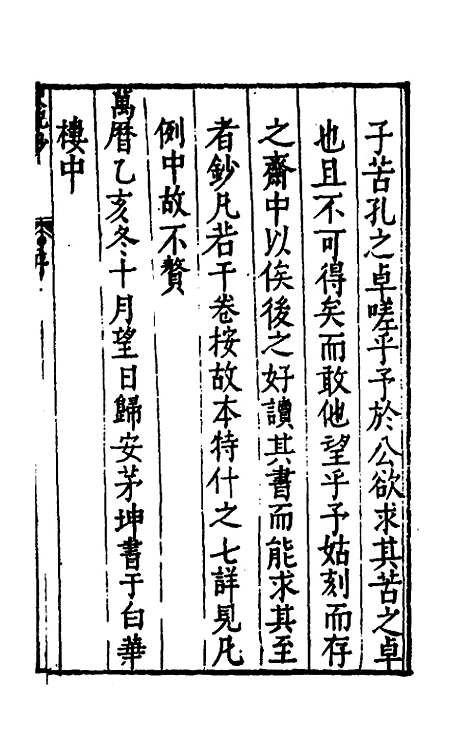 子苦孔之卓嗟乎予於公欲求其苦之卓
也且不可得矣而敢他望乎予姑刻而存
之齋中以俟後之好讀其書而能求其至
者鈔凡若干卷按故本特什之七詳見凡
例中故不贅
萬曆乙亥冬十月望日歸安茅坤書于白華
樓中